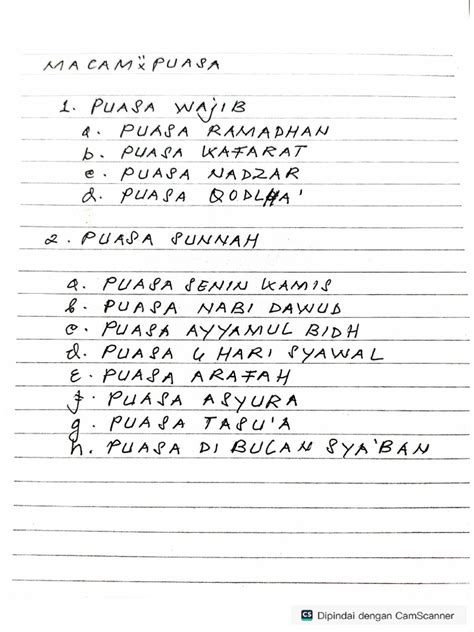 MACAM² PUASA
1. PUASA WAJIB
a. PUASA RAMADHAN
b. PUASA KAFARAT
c. PUASA NADZAR
d. PUASA QODLHA'
2. PUASA SUNNAH
a. PUASA SENIN KAMIS
b. PUASA NABI DAWUD
c. PUASA AYYAMUL BIDH
d. PUASA 6 HARI SYAWAL
E. PUASA ARAFAH
f. PUASA ASYURA
g. PUASA TASU'A
h. PUASA DI BULAN SYA'BAN
CS Dipindai dengan CamScanner